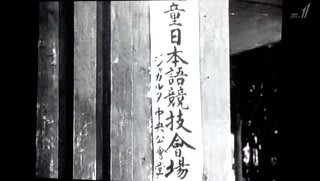 童日本語競技會場
ジャカルタ 中央公會堂